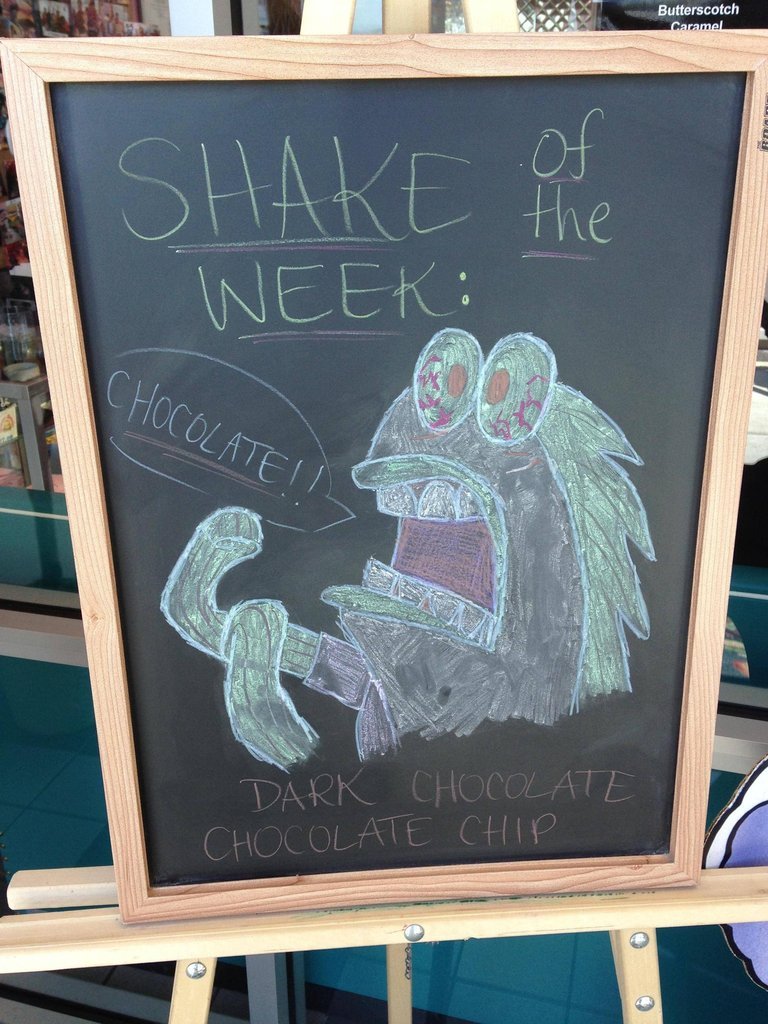 Butterscotch
Caramel
SHAKE of the
WEEK:
CHOCOLATE!!
DARK CHOCOLATE
CHOCOLATE CHIP